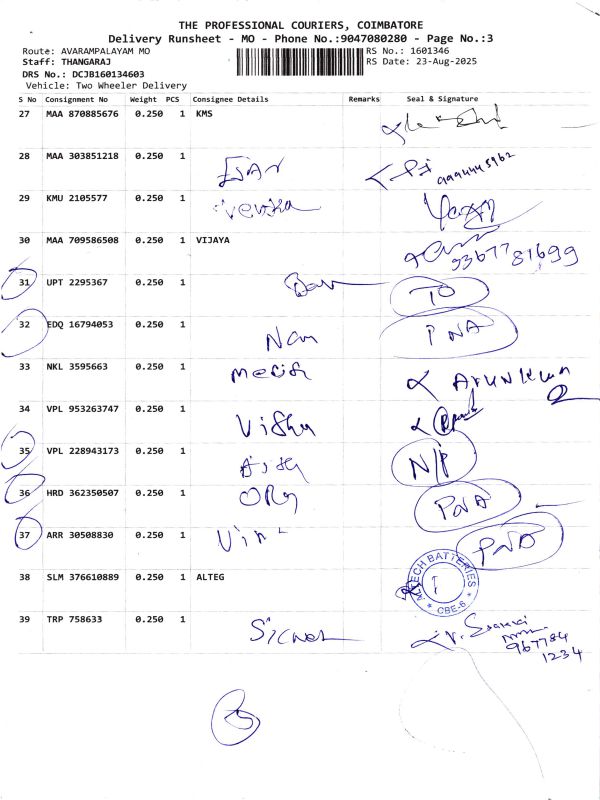 THE PROFESSIONAL COURIERS, COIMBATORE
Delivery Runsheet - MO - Phone No.:9047080280 - Page No.:3
Route: AVARAMPALAYAM MO RS No.: 1601346
Staff: THANGARAJ RS Date: 23-Aug-2025
DRS No.: DCJB160134603
Vehicle: Two Wheeler Delivery
S No Consignment No Weight PCS Consignee Details Remarks Seal & Signature
27 MAA 870885676 0.250 1 KMS
28 MAA 303851218 0.250 1
29 KMU 2105577 0.250 1
30 MAA 709586508 0.250 1 VIJAYA
31 UPT 2295367 0.250 1 TO
32 EDQ 16794053 0.250 1 Nan PNA
33 NKL 3595663 0.250 1 Arunkumar
34 VPL 953263747 0.250 1 Vishu
35 VPL 228943173 0.250 1 N/P
36 HRD 362350507 0.250 1 PNA
37 ARR 30508830 0.250 1 PNA
38 SLM 376610889 0.250 1 ALTEG BATTERIES CBE-6
39 TRP 758633 0.250 1
967784
1234